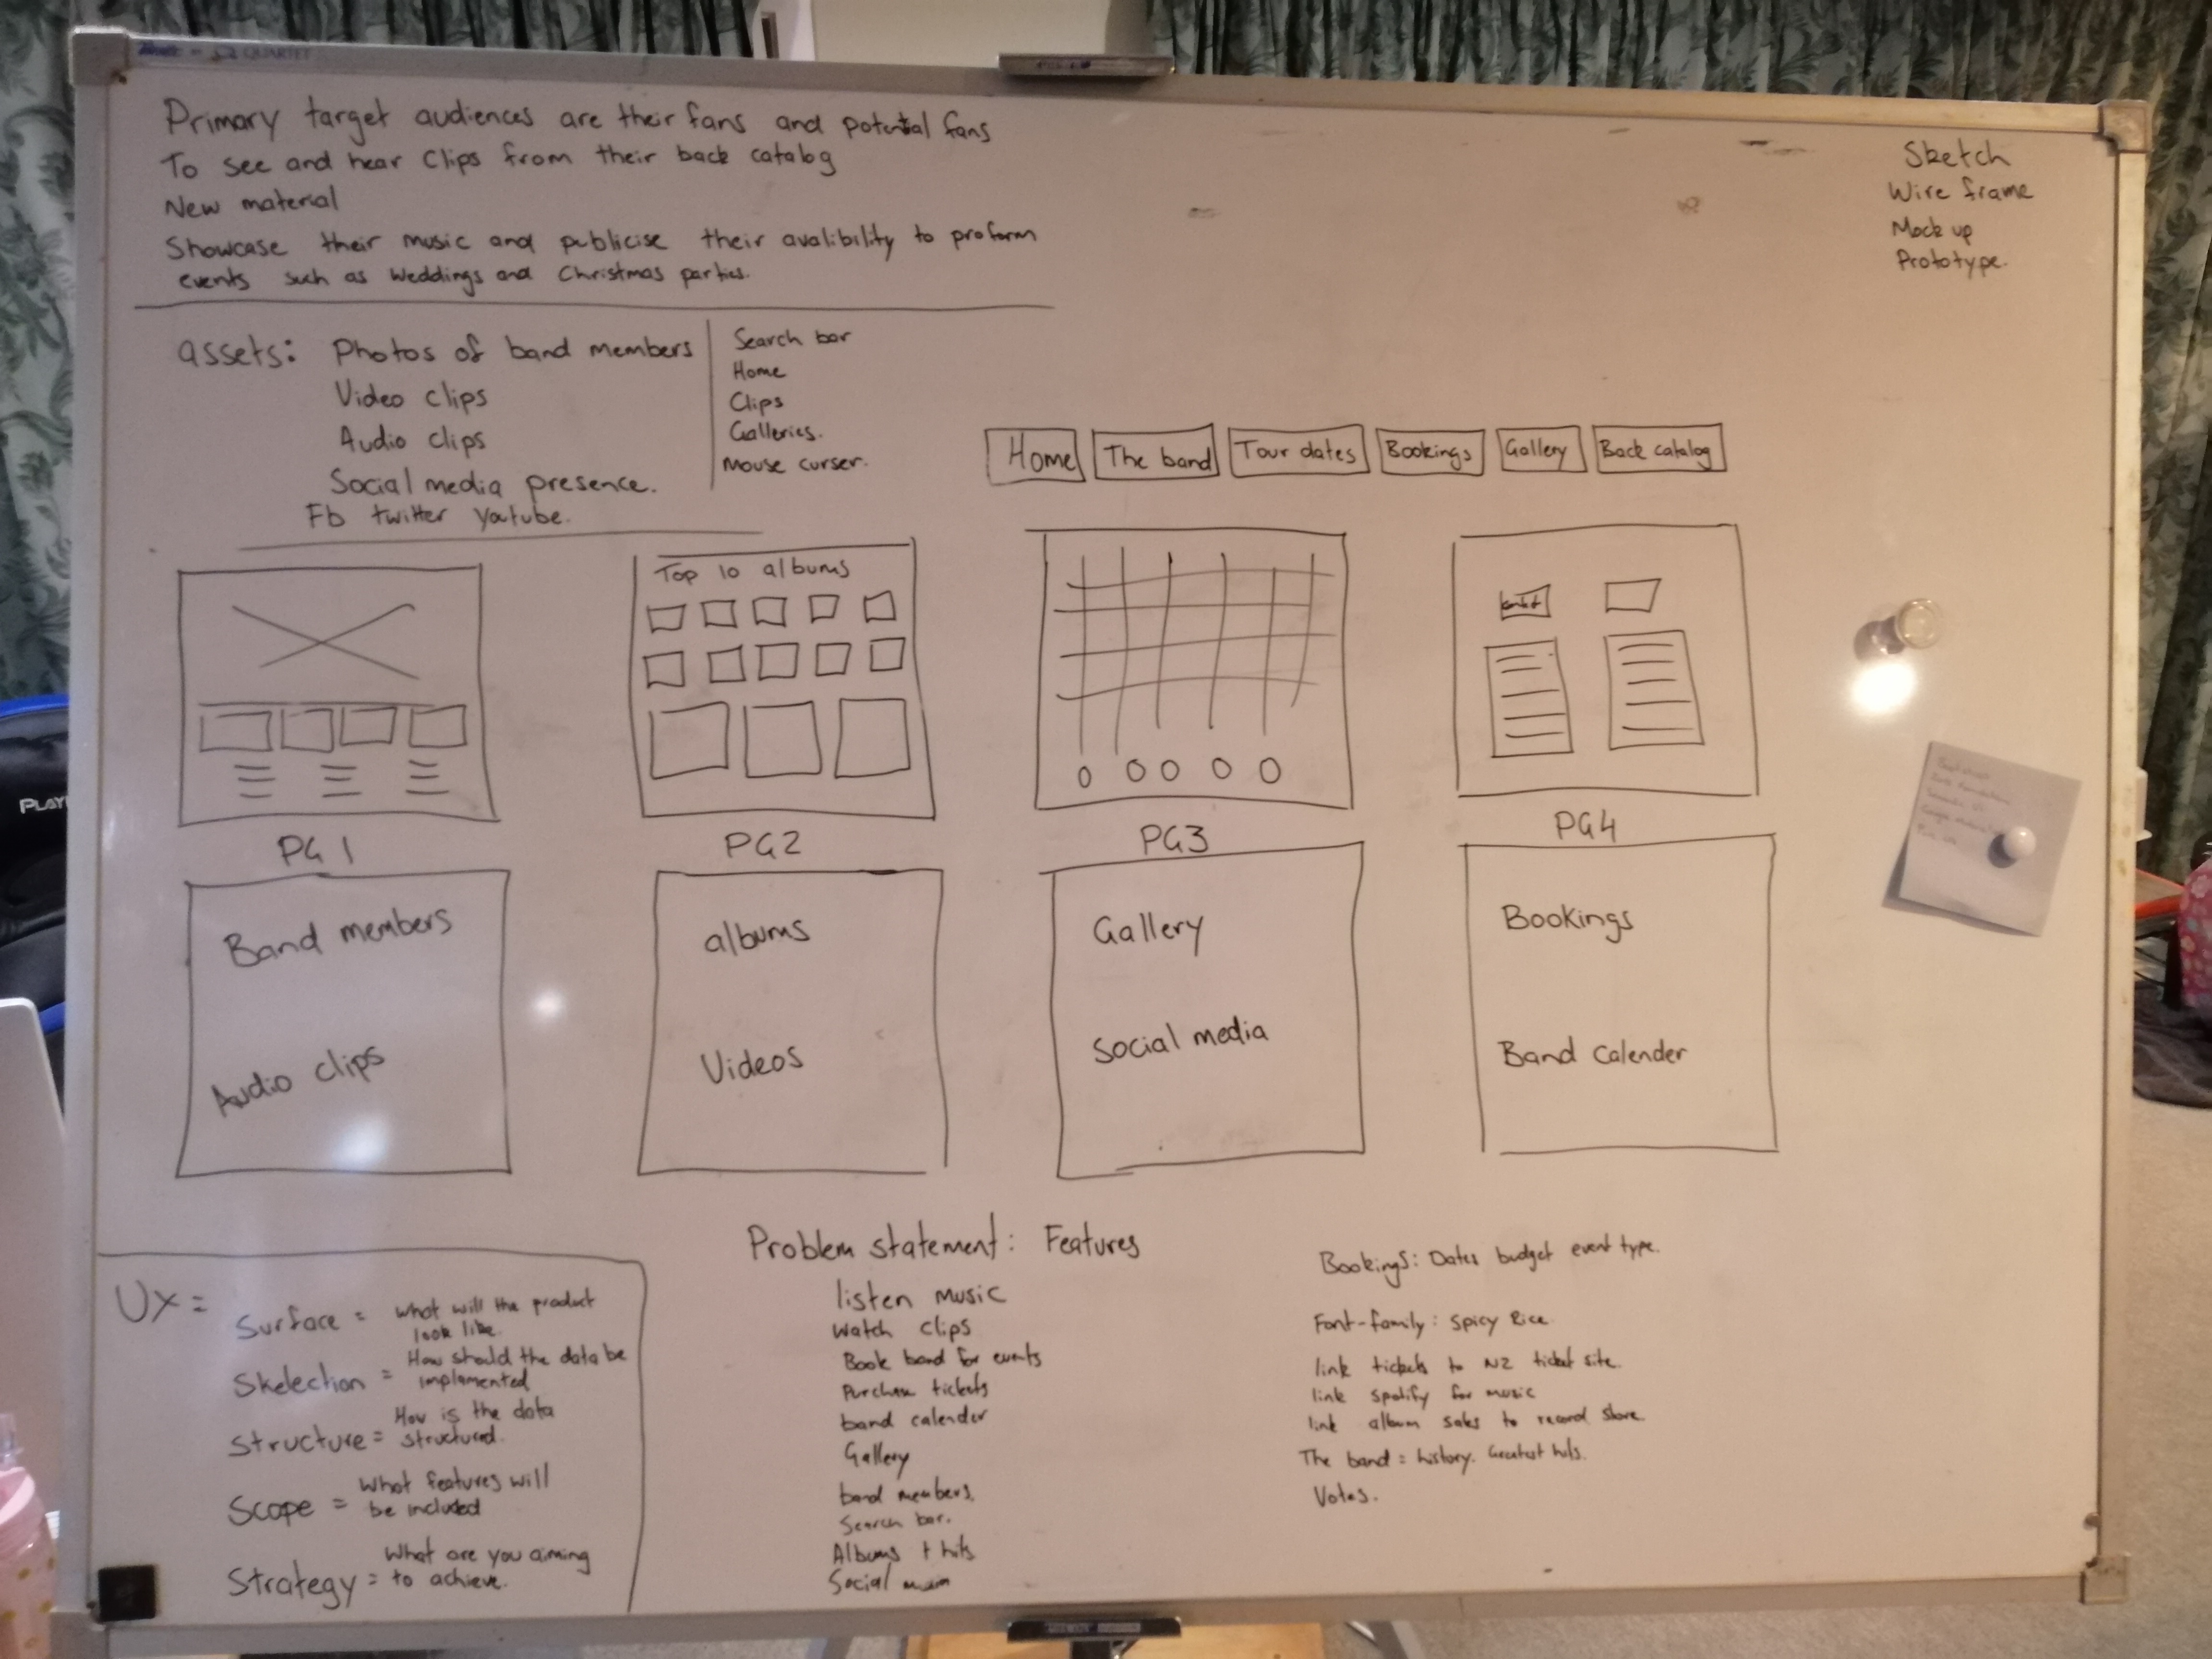 QUARTET
Primary target audiences are their fans and potential fans
To see and hear Clips from their back catalog
New material
Showcase their music and publicise their avalibility to proform
events such as Weddings and Christmas parties.
Sketch
Wire frame
Mock up
Prototype.
assets: Photos of band members
Video clips
Audio clips
Social media presence.
Fb twitter youtube.
Search bar
Home
Clips
Galleries.
Mouse curser.
Home The band Tour dates Bookings Gallery Back catalog
Top 10 albums
PG 1
PG2
PG3
PG4
Band members
Audio clips
albums
Videos
Gallery
Social media
Bookings
Band Calender
PLAY
UX =
Surface = What will the product
look like.
Skelection = How should the data be
implemented
Structure = How is the data
structured.
Scope = What features will
be included
Strategy = What are you aiming
to achieve.
Problem statement: Features
listen music
Watch clips
Book band for events
Purchase tickets
band calender
Gallery
band members.
Search bar.
Albums + hits
Social
Bookings: Dates budget event type.
Font-family: Spicy Rice.
link tickets to NZ ticket site.
link spotify for music
link album sales to record store.
The band = history. Greatest hits.
Votes.